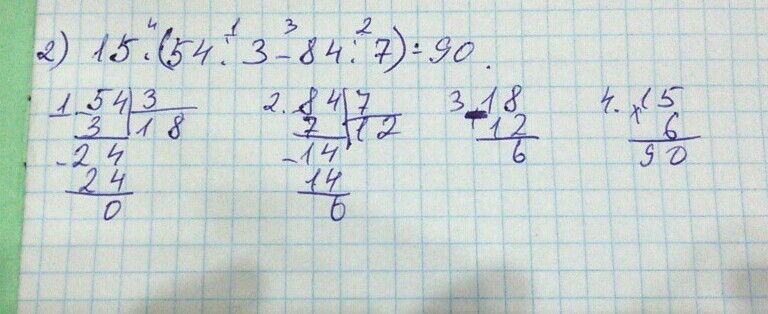 4 1 3 2
2) 15·(54:3-84:7)=90.
1. 54|3 2. 84|7 3. 18 4. 15
3 |18 7 |12 - 12 x 6
-24 -14 6 90
24 14
0 0